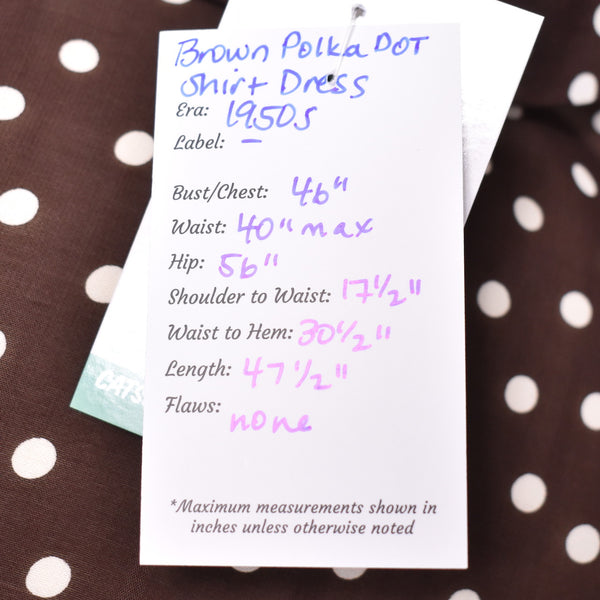 Brown Polka DOT
Shirt Dress
Era: 1950s
Label: -
Bust/Chest: 46"
Waist: 40" max
Hip: 56"
Shoulder to Waist: 17 1/2"
Waist to Hem: 30 1/2"
Length: 47 1/2"
Flaws: none
*Maximum measurements shown in
inches unless otherwise noted
CATS